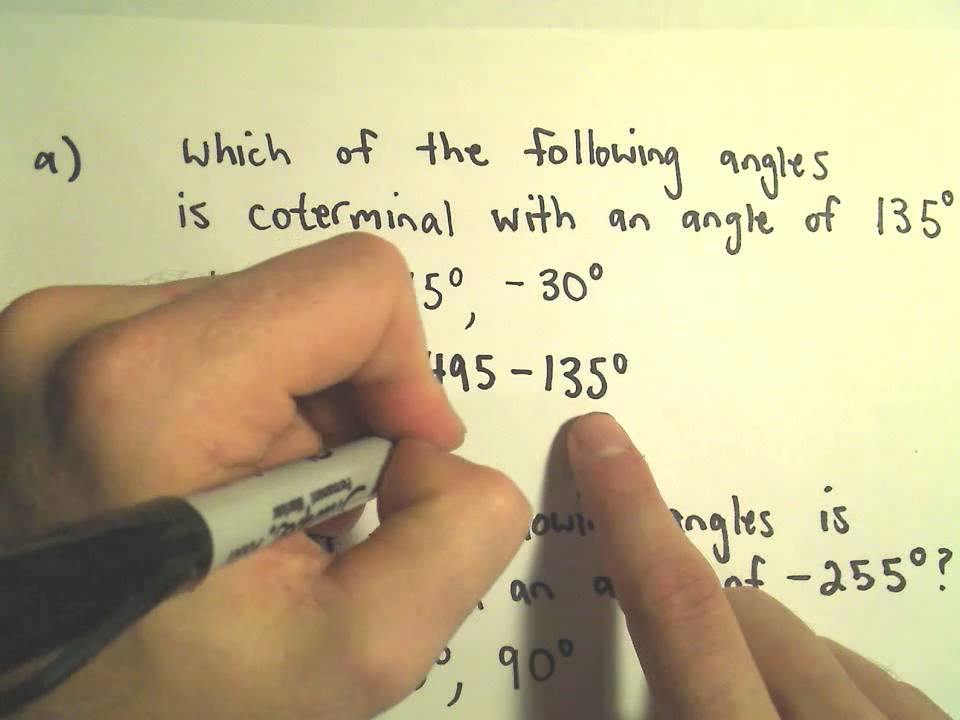 a) Which of the following angles
is coterminal with an angle of 135°
5°, -30°
495 - 135°
angles is
an of -255°?
, 90°